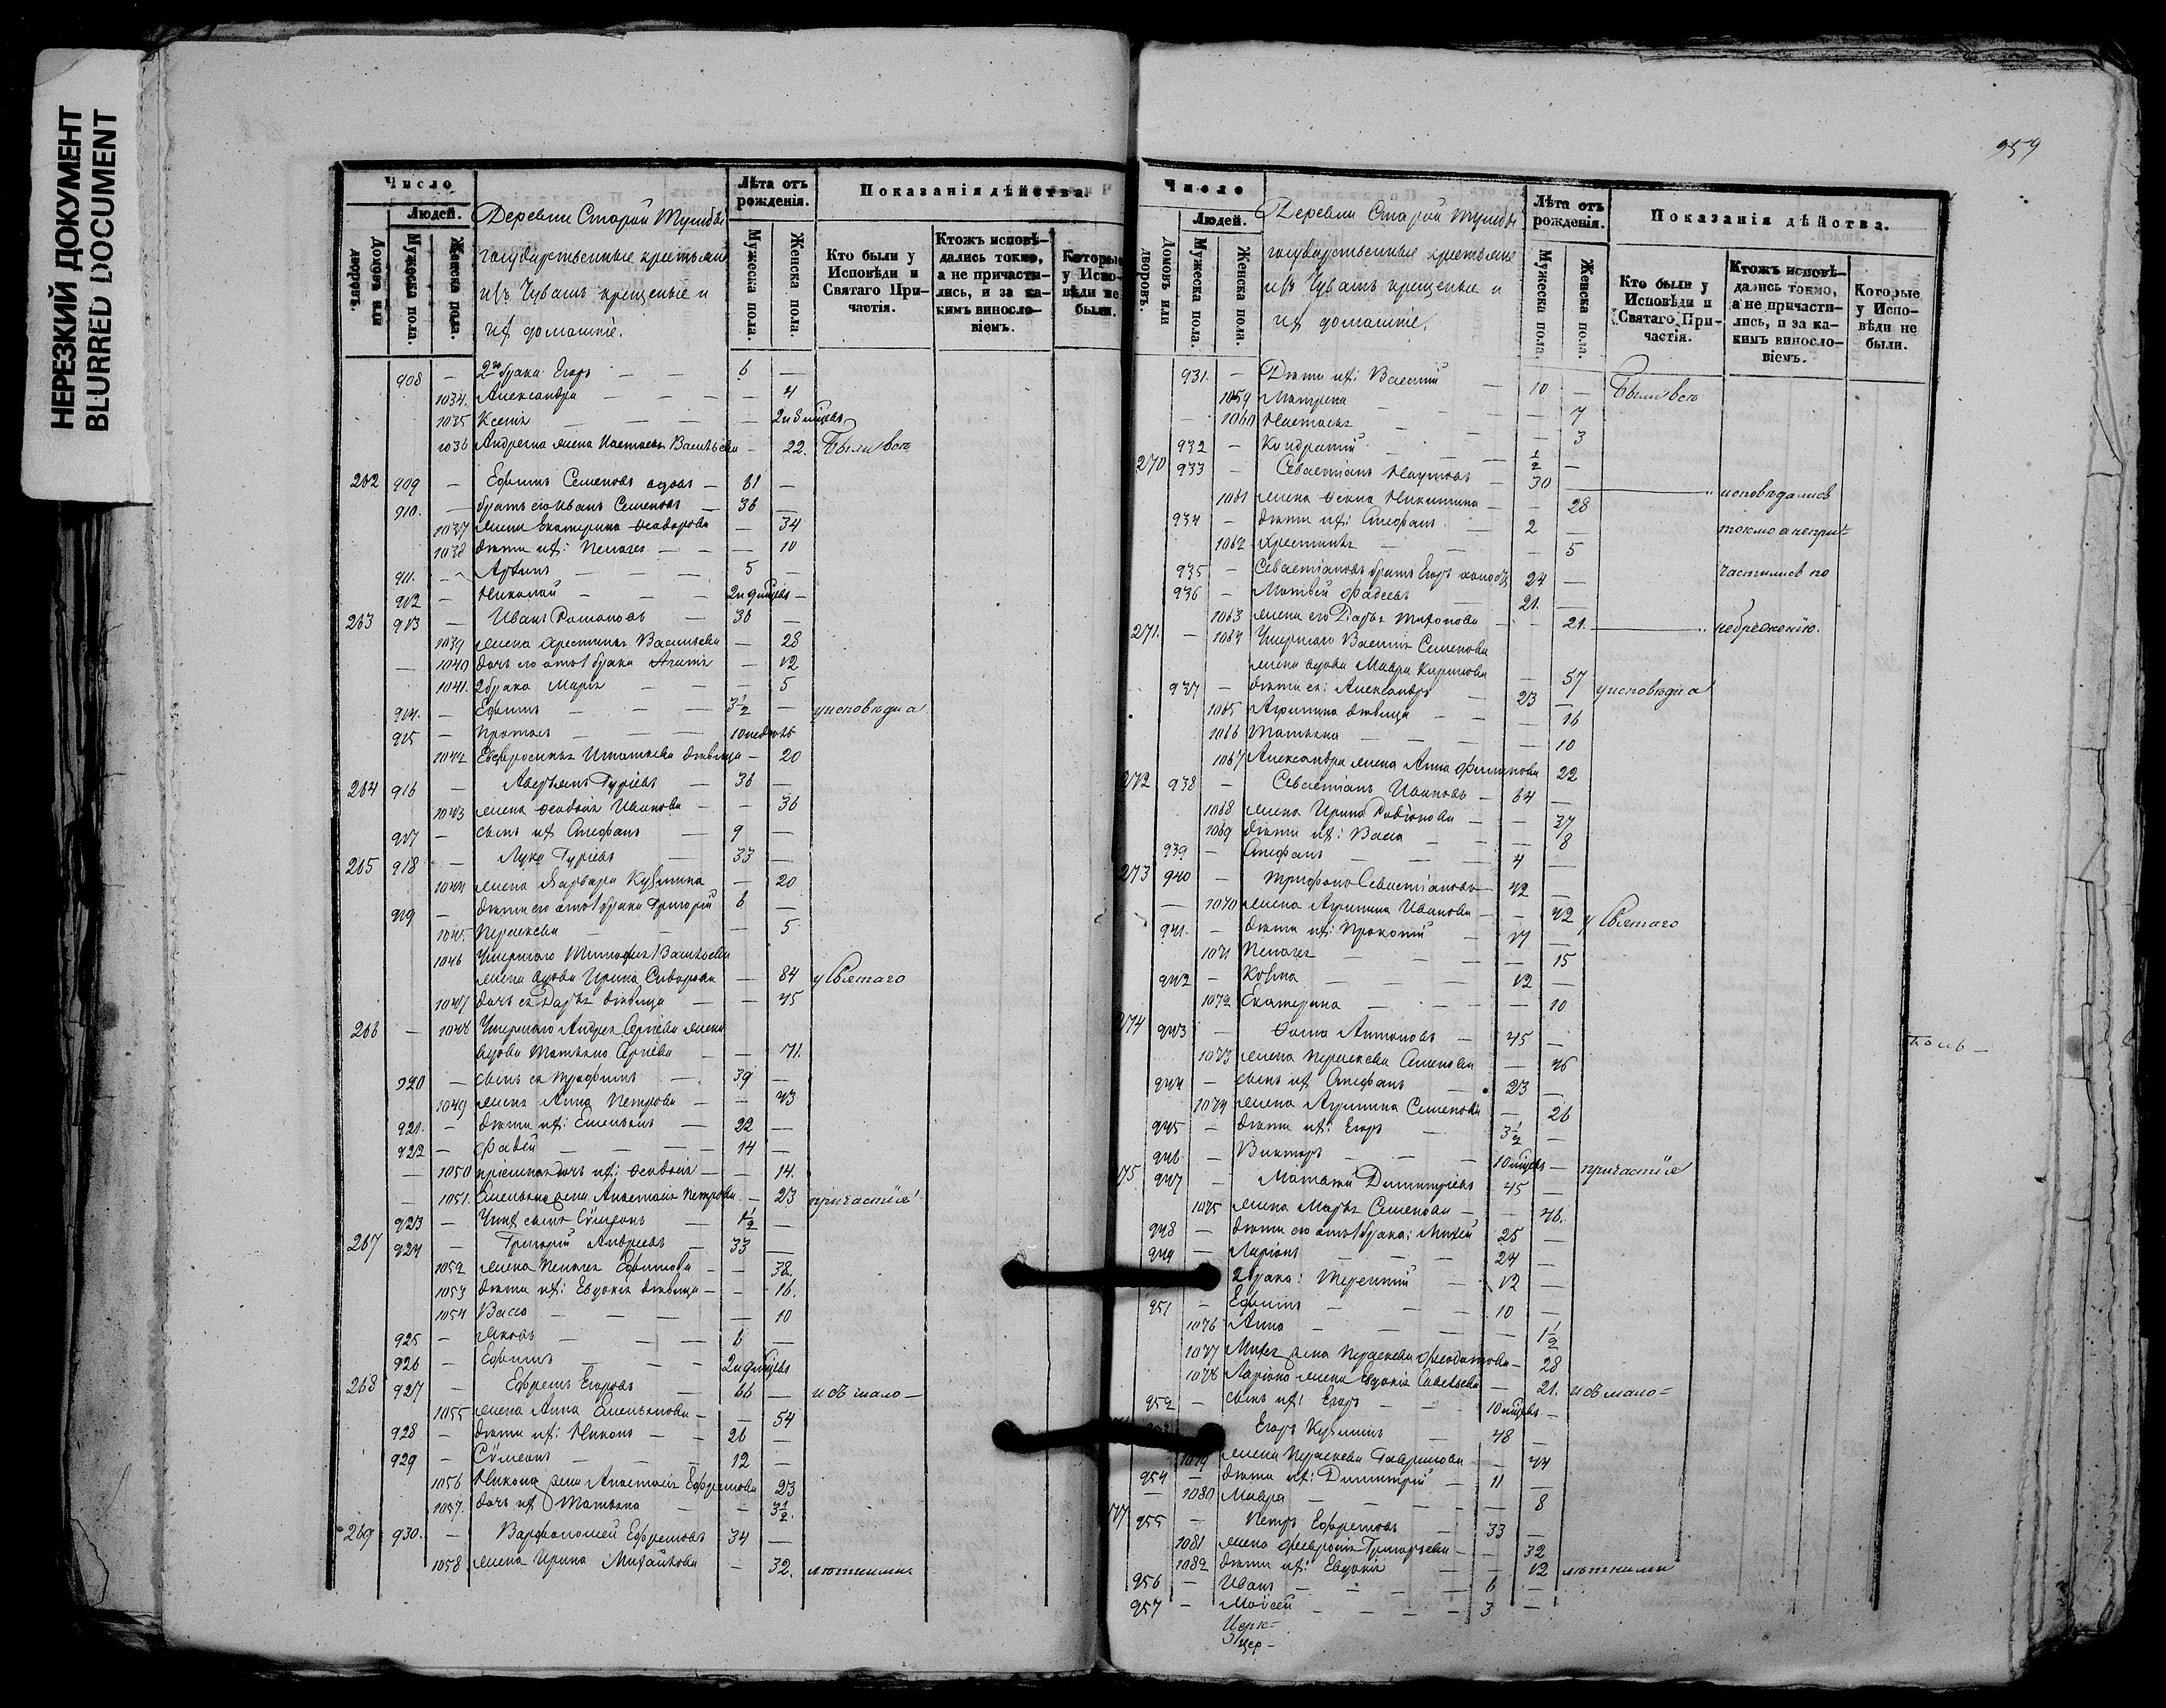 НЕРЕЗКИЙ ДОКУМЕНТ
BLURRED DOCUMENT
Число
Людей.
Домовъ или дворовъ.
Мужеска пола.
Женска пола.
Деревни Старой
государственные крестьяне
изъ Чувашъ крещеные и
ихъ домашніе.
Лѣта отъ рожденія.
Мужеска пола.
Женска пола.
Показанія дѣйства.
Кто были у Исповѣди и Святаго Причастія.
Ктожъ исповѣдались токмо, а не причастились, и за какимъ винословіемъ.
Которые у Исповѣди не были.
908 — 2го брака Егоръ — — 6 —
1034. Александра — — — — 4
1035 Ксенія — — 2 и 8 мѣсяцевъ
1036 Андреяна жена Настасья Васильева — 22. Были всѣ
262 909 — Ефимъ Семеновъ вдовъ — 61 —
910. — братъ его Иванъ Семеновъ — 36 —
1037 жена Екатерина Ѳеодорова — 34
1038 дѣти ихъ: Пелагея — — — 10
911. — — — — 5 —
912 — Николай — — — 2 и 9 мѣсяцевъ —
263 913 — Иванъ Романовъ — 36 —
1039 жена Христинья Васильева — 28
— 1040 дочь его отъ 1 брака Агапія — 12
1041. 2 брака Марія — — — 5
914. — Ефимъ — — — 3 1/2 — у исповѣди и
915 — — — — 10 недѣль
1042 Евфросинья Игнатьева дѣвица — 20
264 916 — Аверьянъ Гурьевъ — 36 —
1043 жена Ѳеодосія Иванова — — 36
917 — сынъ ихъ Стефанъ — 9 —
265 918 — Лука Гурьевъ — 33 —
1044 жена Варвара Кузмина — 20
919 — дѣти его отъ 1 брака Григорій 6 —
1045. Параскева — — — 5
1046 Умершаго Тимофея Васильева
жена вдова Ирина Сидорова — 84 у Святаго
1047 дочь ея Дарья дѣвица — — 45
266 — 1048 Умершаго Андрея Сергеева жена
вдова Татьяна Сергіева — — 71.
920 — сынъ ея Трофимъ — 39 —
1049 жена Анна Петрова — — 43
921. — дѣти ихъ: Емельянъ — 22 —
922 — Фадей — — — 14 —
— 1050 пріемная дочь ихъ: Ѳеодосія — — 14.
— 1051. Емельяна жена Анастасія Петрова — 23 причастія
923 — Ихъ сынъ Сѵмеонъ — 1 1/2 —
267 924 — Григорій Андреевъ — 33 —
1052 жена Пелагея Ефимова — — 38.
1053 дѣти ихъ: Евдокія дѣвица — — 16.
1054 Васса — — — — 10
925 — Яковъ — — — 6 —
926 — Ефимъ — — — 2 и 9 мѣсяцевъ
268 927 — Ефремъ Егоровъ — 66 — и съ мало—
1055 жена Анна Емельянова — — 54
928 — дѣти ихъ: Никонъ — — 26 —
929 — Сѵмеонъ — — — 12 —
1056 Никона жена Анастасія Ефремова 23
1057. дочь ихъ Татьяна — — 3 1/2.
269 930. — Варфоломей Ефремовъ 34 —
1058. жена Ирина Михайлова — 32. лѣтними
959
Число
Людей.
Домовъ или дворовъ.
Мужеска пола.
Женска пола.
Деревни Старой
государственные крестьяне
изъ Чувашъ крещеные и
ихъ домашніе.
Лѣта отъ рожденія.
Мужеска пола.
Женска пола.
Показанія дѣйства.
Кто были у Исповѣди и Святаго Причастія.
Ктожъ исповѣдались токмо, а не причастились, и за какимъ винословіемъ.
Которые у Исповѣди не были.
931. — Дѣти ихъ: Василій — 10 — Были всѣ
1059 Матрена — — — — 7
1060 Настасья — — — 3
932 — Кондратій — — — 1/2 —
270 933 — Севастіанъ Наумовъ — 30 — исповѣдались
1061 жена Ѳекла Никитина — — 28
934 — дѣти ихъ: Стефанъ — 2 — токмо а непри=
1062 Христинья — — — 5
935 — Севастіановъ братъ Егоръ холостъ 24 — частились по
936 — Матвей Фадеевъ — 21. —
1063 жена его Дарья Тихонова — — 21. небреженію.
271. — 1064 Умершаго Василія Семенова
жена вдова Мавра Кирилова — 57
937 — дѣти ея: Александръ — 23 — у исповѣди и
1065 Агрипина дѣвица — — — 16
1066 Татьяна — — — 10
1067 Александра жена Анна Филипова 22
272 938 — Севастіанъ Ивановъ — 64 —
1068 жена Ирина Родіонова — — 37
1069 дѣти ихъ: Васса — — — 8
939 — Стефанъ — — — 4 —
273 940 — Трифонъ Севастіановъ — 42 —
— 1070 жена Агрипина Иванова — — 42 у Святаго
941. — дѣти ихъ: Прокопій — 17 —
1071 Пелагея — — — 15
942 — Козма — — — 12 —
1072 Екатерина — — — — 10
274 943 — Ѳома Антоновъ — 45 —
1073 жена Параскева Семенова — 46
944 — сынъ ихъ Стефанъ — 23 —
1074 жена Агрипина Семенова — 26
945 — дѣти ихъ: Егоръ — 3 1/2 —
946 — Викторъ — — — 10 мѣсяцевъ — причастія
275 947 — Матвей Димитріевъ 45 —
1075 жена Марья Семенова — — 46.
948 — дѣти его отъ 1 брака: Михей 25 —
949 — Ларіонъ — — — 24 —
2 брака: Терентій — 12 —
951 — Ефимъ — — — 10 —
1076 Анна — — — — 1 1/2
1077 Михея жена Параскева Феодотова — 28
1078 Ларіона жена Евдокія Савельева — 21. и съ мало=
952 — сынъ ихъ: Егоръ — — 10 мѣсяцевъ —
Егоръ Кузминъ — 48 —
1079 жена Параскева Гаврилова — 44
954 — дѣти ихъ: Димитрій — 11 —
1080 Мавра — — — — 8
955 — Петръ Ефремовъ — 33 —
1081 жена Февронія Григорьева — — 32
1082 дѣти ихъ: Евдокія — — 12 лѣтними
956 — Иванъ — — — 6 —
957 — Моѵсей — — — 3 —